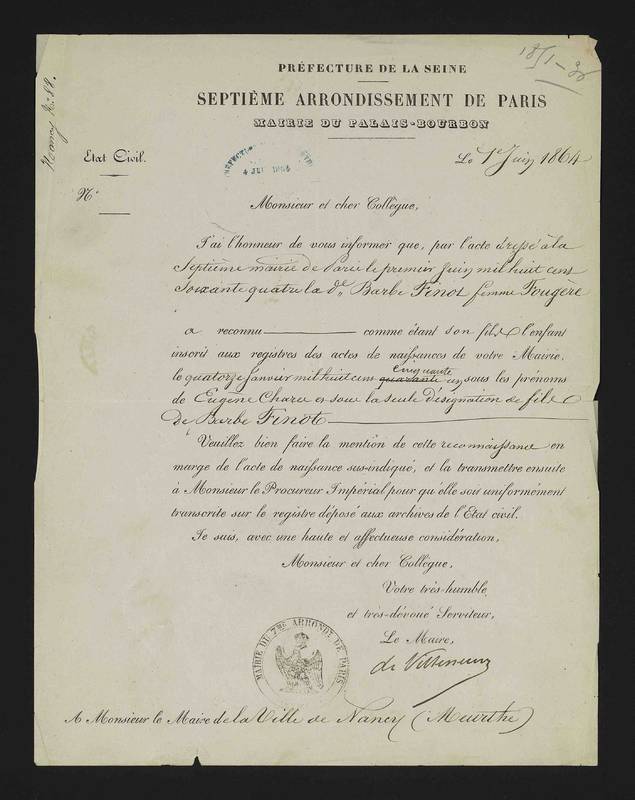 Nancy N: 88.
18/1-36
PRÉFECTURE DE LA SEINE
SEPTIÈME ARRONDISSEMENT DE PARIS
MAIRIE DU PALAIS-BOURBON
Etat Civil.
Le 1er Juin 1864
N°
4 JUI 1864
Monsieur et cher Collègue,
J'ai l'honneur de vous informer que, par l'acte dressé à la
Septième mairie de Paris le premier Juin mil huit cent
Soixante quatre la de Barbe Finot femme Fougère
a reconnu comme étant son fils l'enfant
inscrit aux registres des actes de naissances de votre Mairie,
cinquante
le quatorze Janvier mil huit cent quarante un, sous les prénoms
de Eugène Charles et sous la seule désignation de fils
de Barbe Finot
Veuillez bien faire la mention de cette reconnaissance en
marge de l'acte de naissance sus-indiqué, et la transmettre ensuite
à Monsieur le Procureur Impérial pour qu'elle soit uniformément
transcrite sur le registre déposé aux archives de l'Etat civil.
Je suis, avec une haute et affectueuse considération,
Monsieur et cher Collègue,
Votre très-humble
et très-dévoué Serviteur,
Le Maire,
MAIRIE DU 7me ARRONDt DE PARIS
A Monsieur le Maire de la Ville de Nancy (Meurthe)